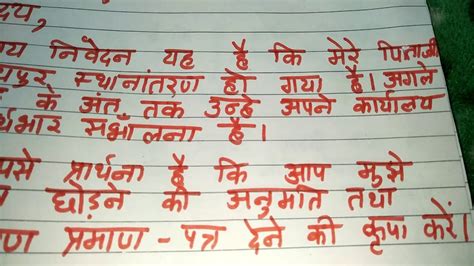 दय,
य निवेदन यह है कि मेरे पिताजी
यपुर स्थानांतरण हो गया है। अगले
के अंत तक उन्हे अपने कार्यालय
र्यभार सँभालना है।
पसे प्रार्थना है कि आप मुझे
छोड़ने की अनुमति तथा
ण प्रमाण - पत्र देने की कृपा करें।